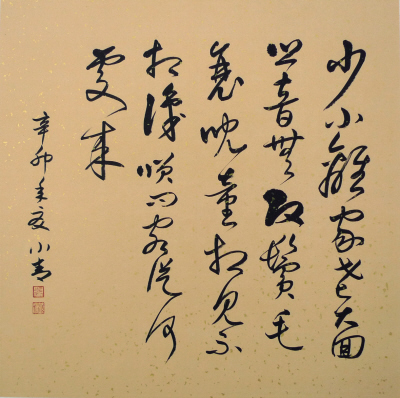 少小離家老大回
鄉音無改鬢毛
衰兒童相見不
相識咲問客從何
處來
辛卯年夏小青